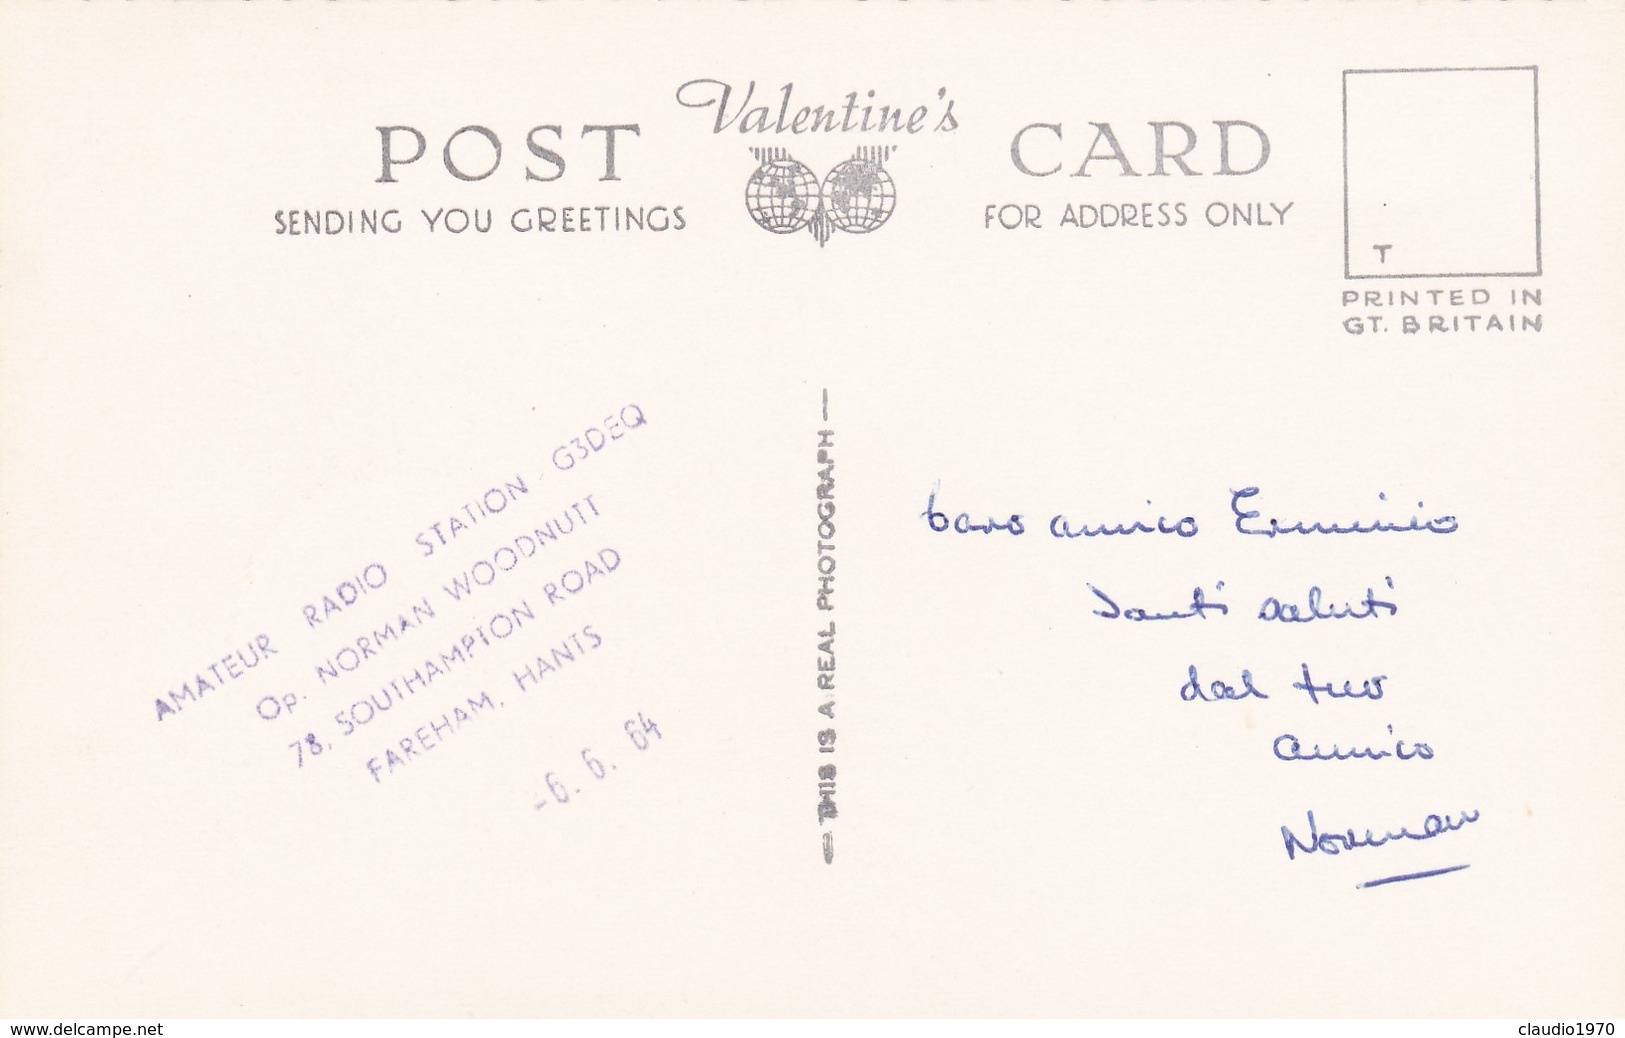 Valentine's
POST CARD
SENDING YOU GREETINGS
FOR ADDRESS ONLY
T
PRINTED IN
GT. BRITAIN
AMATEUR RADIO STATION G3DEQ
Op. NORMAN WOODNUTT
78, SOUTHAMPTON ROAD
FAREHAM, HANTS
-6. 6. 64
— THIS IS A REAL PHOTOGRAPH —
Caro amico Erminio
Tanti saluti
dal tuo
amico
Norman
www.delcampe.net
claudio1970